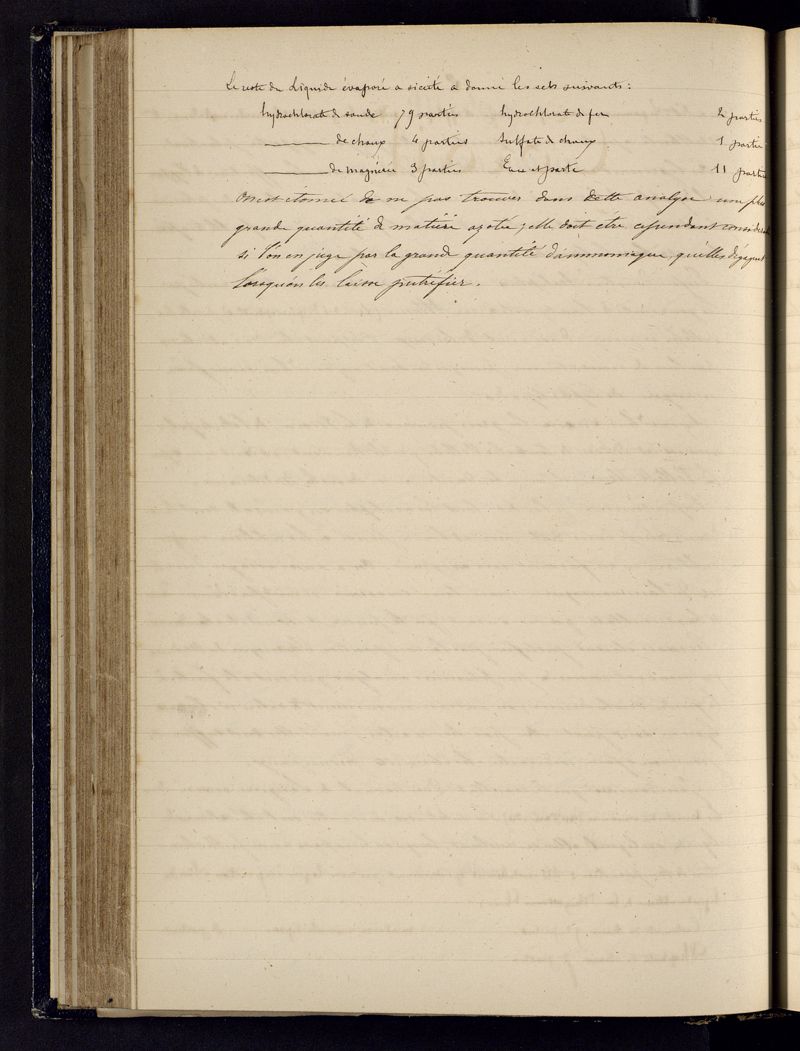 Le reste du Liquide évaporé a siccité a donné les sels suivants :
hydrochlorate de soude 79 parties hydrochlorate de fer 2 parties
——— de chaux 4 parties Sulfate de chaux 1 partie
——— de magnésie 3 parties Eau et perte 11 parties
On est etonné de ne pas trouver dans cette analyse une plus
grande quantité de matière azotée ; elle doit etre cependant considerable
si l'on en juge par la grande quantité d'ammoniaque qu'elles dégagent
lorsqu'on les laisse putréfier.